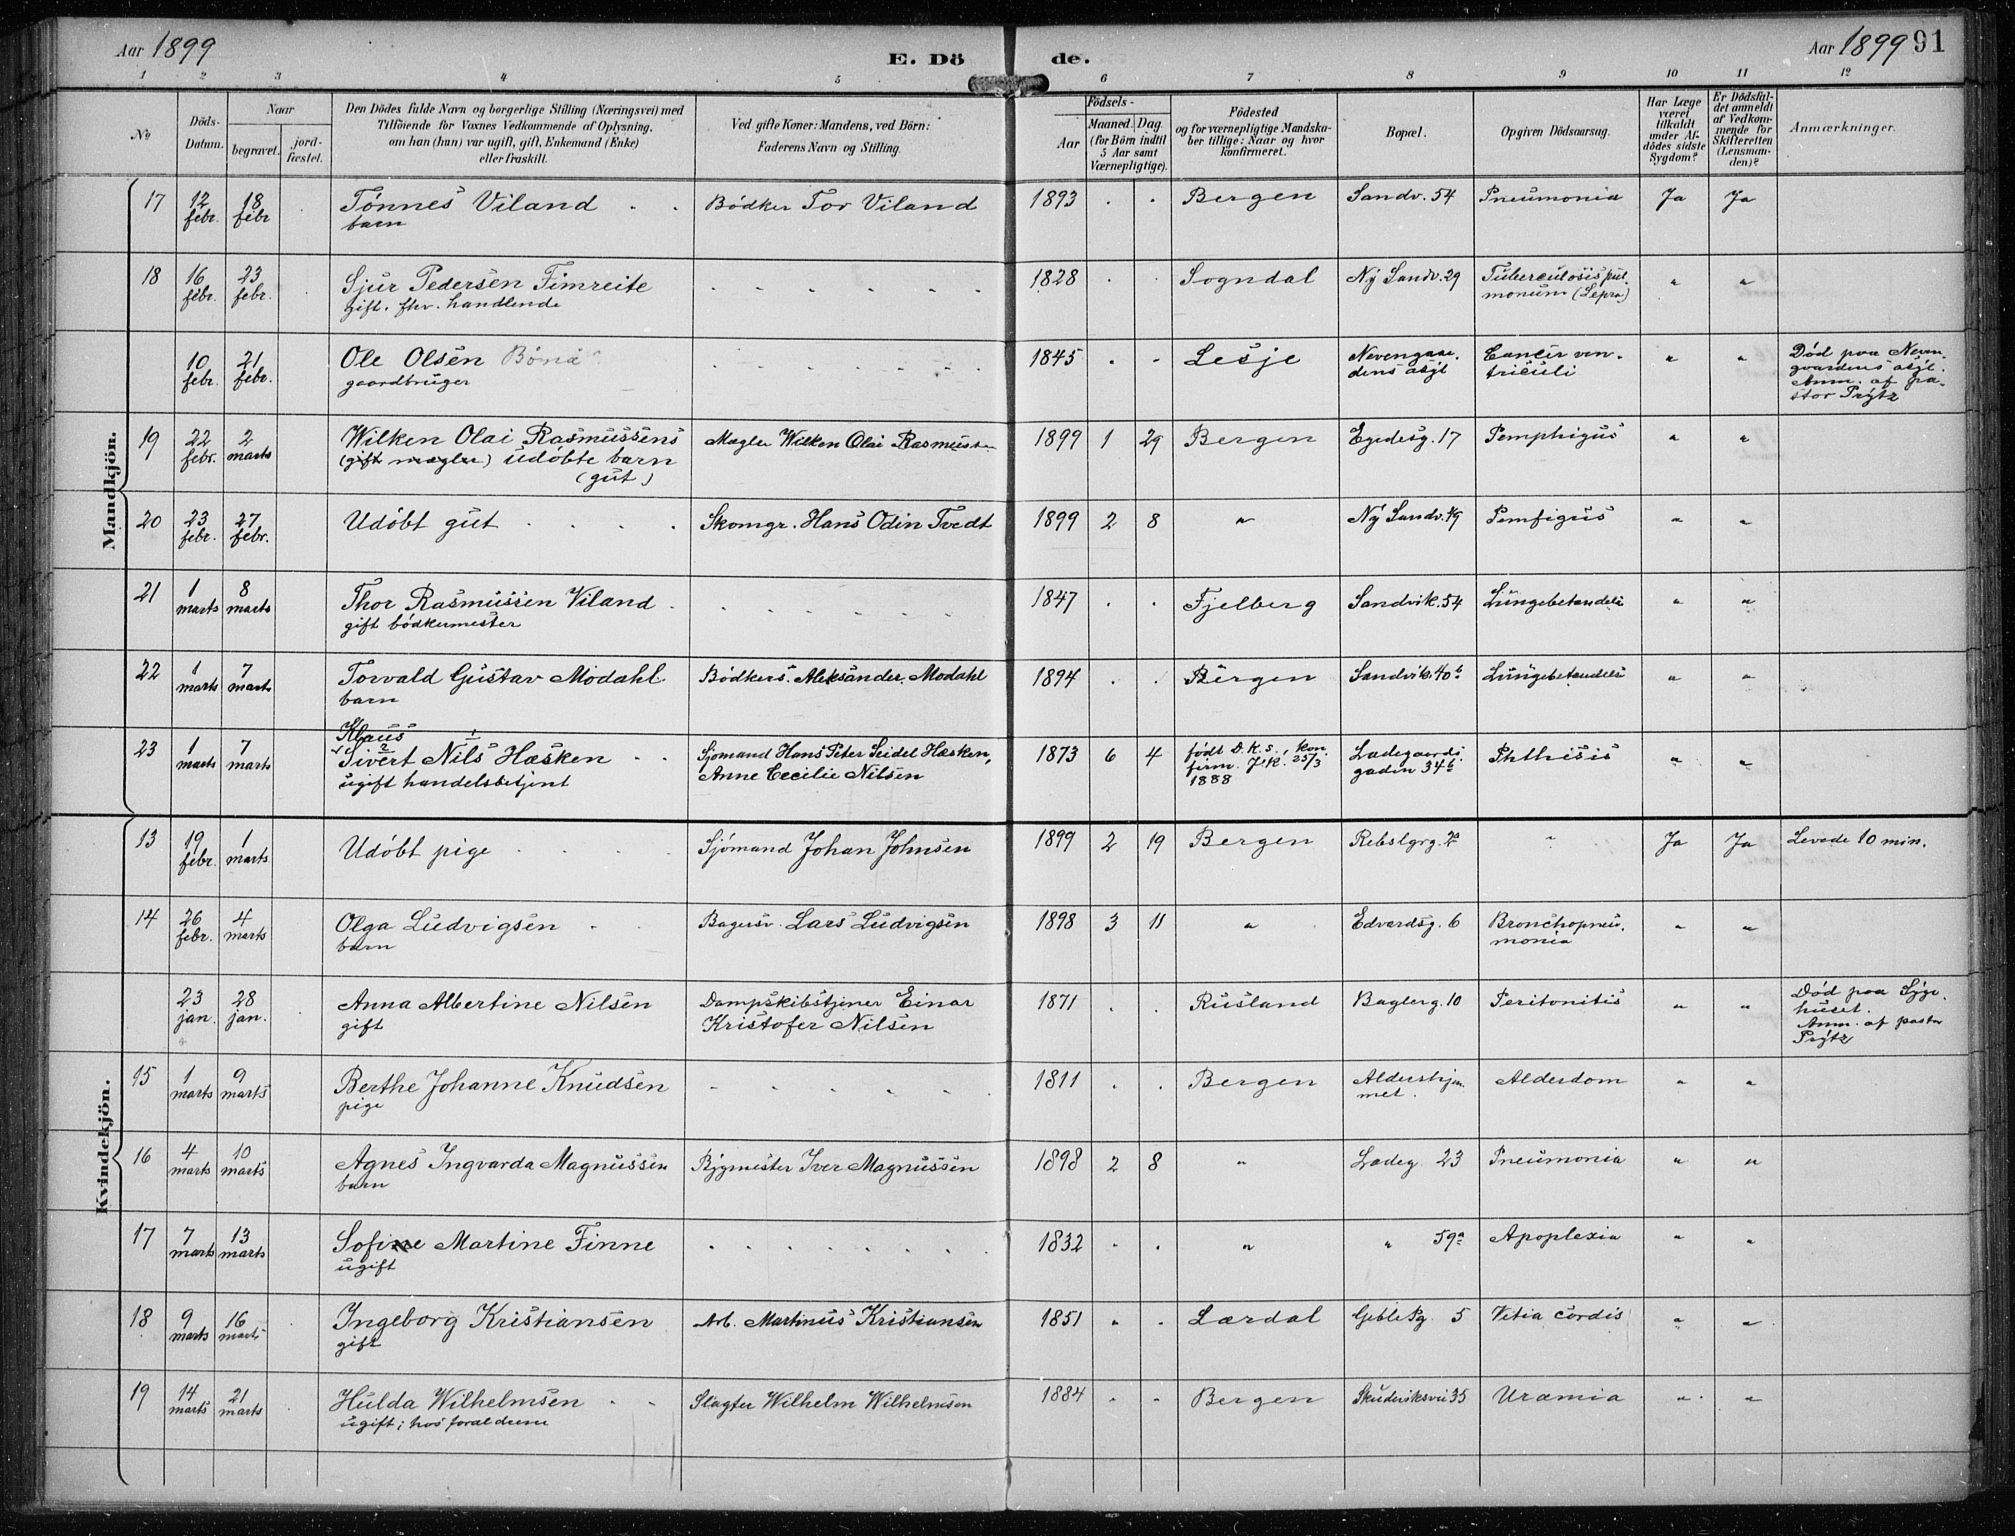 Aar 1899
E. Dö de.
Aar 1899 91
1 2 3 4 5 6 7 8 9 10 11 12
No
Döds-Datum.
Naar
begravet.
jordfæstet.
Den Dödes fulde Navn og borgerlige Stilling (Næringsvei) med
Tilföiende for Voxnes Vedkommende af Oplysning,
om han (hun) var ugift, gift, Enkemand (Enke)
eller fraskilt.
Ved gifte Koner: Mandens, ved Börn:
Faderens Navn og Stilling.
Födsels-
Aar
Maaned. Dag
(for Börn indtil
5 Aar samt
Værnepligtige).
Födested
og for værnepligtige Mandskaber tillige: Naar og hvor
konfirmeret.
Bopæl.
Opgiven Dödsaarsag.
Har Læge
været
tilkaldt
under Afdödes sidste
Sygdom?
Er Dödsfaldet anmeldt
af Vedkommende for
Skifteretten
(Lensmanden)?
Anmærkninger.
Mandkjön.
17 12 febr. 18 febr Tønnes Viland . . Bødker Tor Viland 1893 . . Bergen Sandv. 54 Pneumonia Ja Ja
barn
18 16 febr. 23 febr. Sjur Pedersen Fimreite - - - - - - 1828 . . Sogndal Ny Sandv. 29 Tuberculosis pulmonum (Lepra) " "
gift. fhv. handlende
10 febr. 21 febr. Ole Olsen Bønå 1845 . - Lesje Nevengaardens asyl Cancer ventriculi " " Død paa Nevengaardens asyl. Anm. af pastor Prytz
gaardbruger
19 22 febr. 2 marts Wilken Olai Rasmussens Mægler Wilken Olai Rasmussen 1899 1 29 Bergen Egedesg. 17 Pemphigus " "
(gift mægler) udøbte barn
(gut)
20 23 febr. 27 febr. Udøbt gut . . . . Skomgr. Hans Odin Tvedt 1899 2 8 " Ny Sandv. 49 Pemfigus " "
21 1 marts 8 marts Thor Rasmussen Viland . . . . . . . 1847 . . Fjelberg Sandvik. 54 Lungebetændelse " "
gift bødkermester
22 1 marts 7 marts Torvald Gustav Modahl Bødkers. Aleksander Modahl 1894 . . Bergen Sandvik. 40b Lungebetændelse " "
barn
Klaus
23 1 marts 7 marts Sivert Nils Hæsken . . Sjømand Hans Peter Seidel Hæsken, 1873 6 4 født D.K.S., konfirm. J.K. 25/3 1888 Ladegaardsgaden 34b Phthisis " "
ugift handelsbetjent Anne Cecilie Nilsen
Kvindekjön.
13 19 febr. 1 marts. Udøbt pige . . . . Sjømand Johan Johnsen 1899 2 19 Bergen Rebslgrg. 2a " Ja Ja Levede 10 min.
14 26 febr. 4 marts Olga Ludvigsen . Bagersv. Lars Ludvigsen 1898 3 11 " Edvardsg. 6 Bronchopneumonia " "
barn
23 jan. 28 jan. Anna Albertine Nilsen Dampskibstjener Einar 1871 . . Rusland Baglerg. 10 Peritonitis " " Død paa Sygehuset. Anm. af pastor Prytz
gift Kristofer Nilsen
15 1 marts 9 marts Berthe Johanne Knudsen - . . . . 1811 . . Bergen Aldershjemmet. Alderdom " "
pige
16 4 marts 10 marts Agnes Ingvarda Magnussen Bygmester Iver Magnussen 1898 2 8 " Ladeg. 23 Pneumonia " "
barn
17 7 marts 13 marts Sofie Martine Finne . . . . . . . . 1832 . . " " 59a Apoplexia " "
ugift
18 9 marts 16 marts Ingeborg Kristiansen Arb. Martinus Kristiansen 1851 . . Lærdal Geblesg. 5 Vitia cordis " "
gift
19 14 marts 21 marts Hulda Wilhelmsen . . Slagter Wilhelm Wilhelmsen 1884 . . Bergen Skuteviksvei 35 Uræmia " "
ugift; hos forældrene